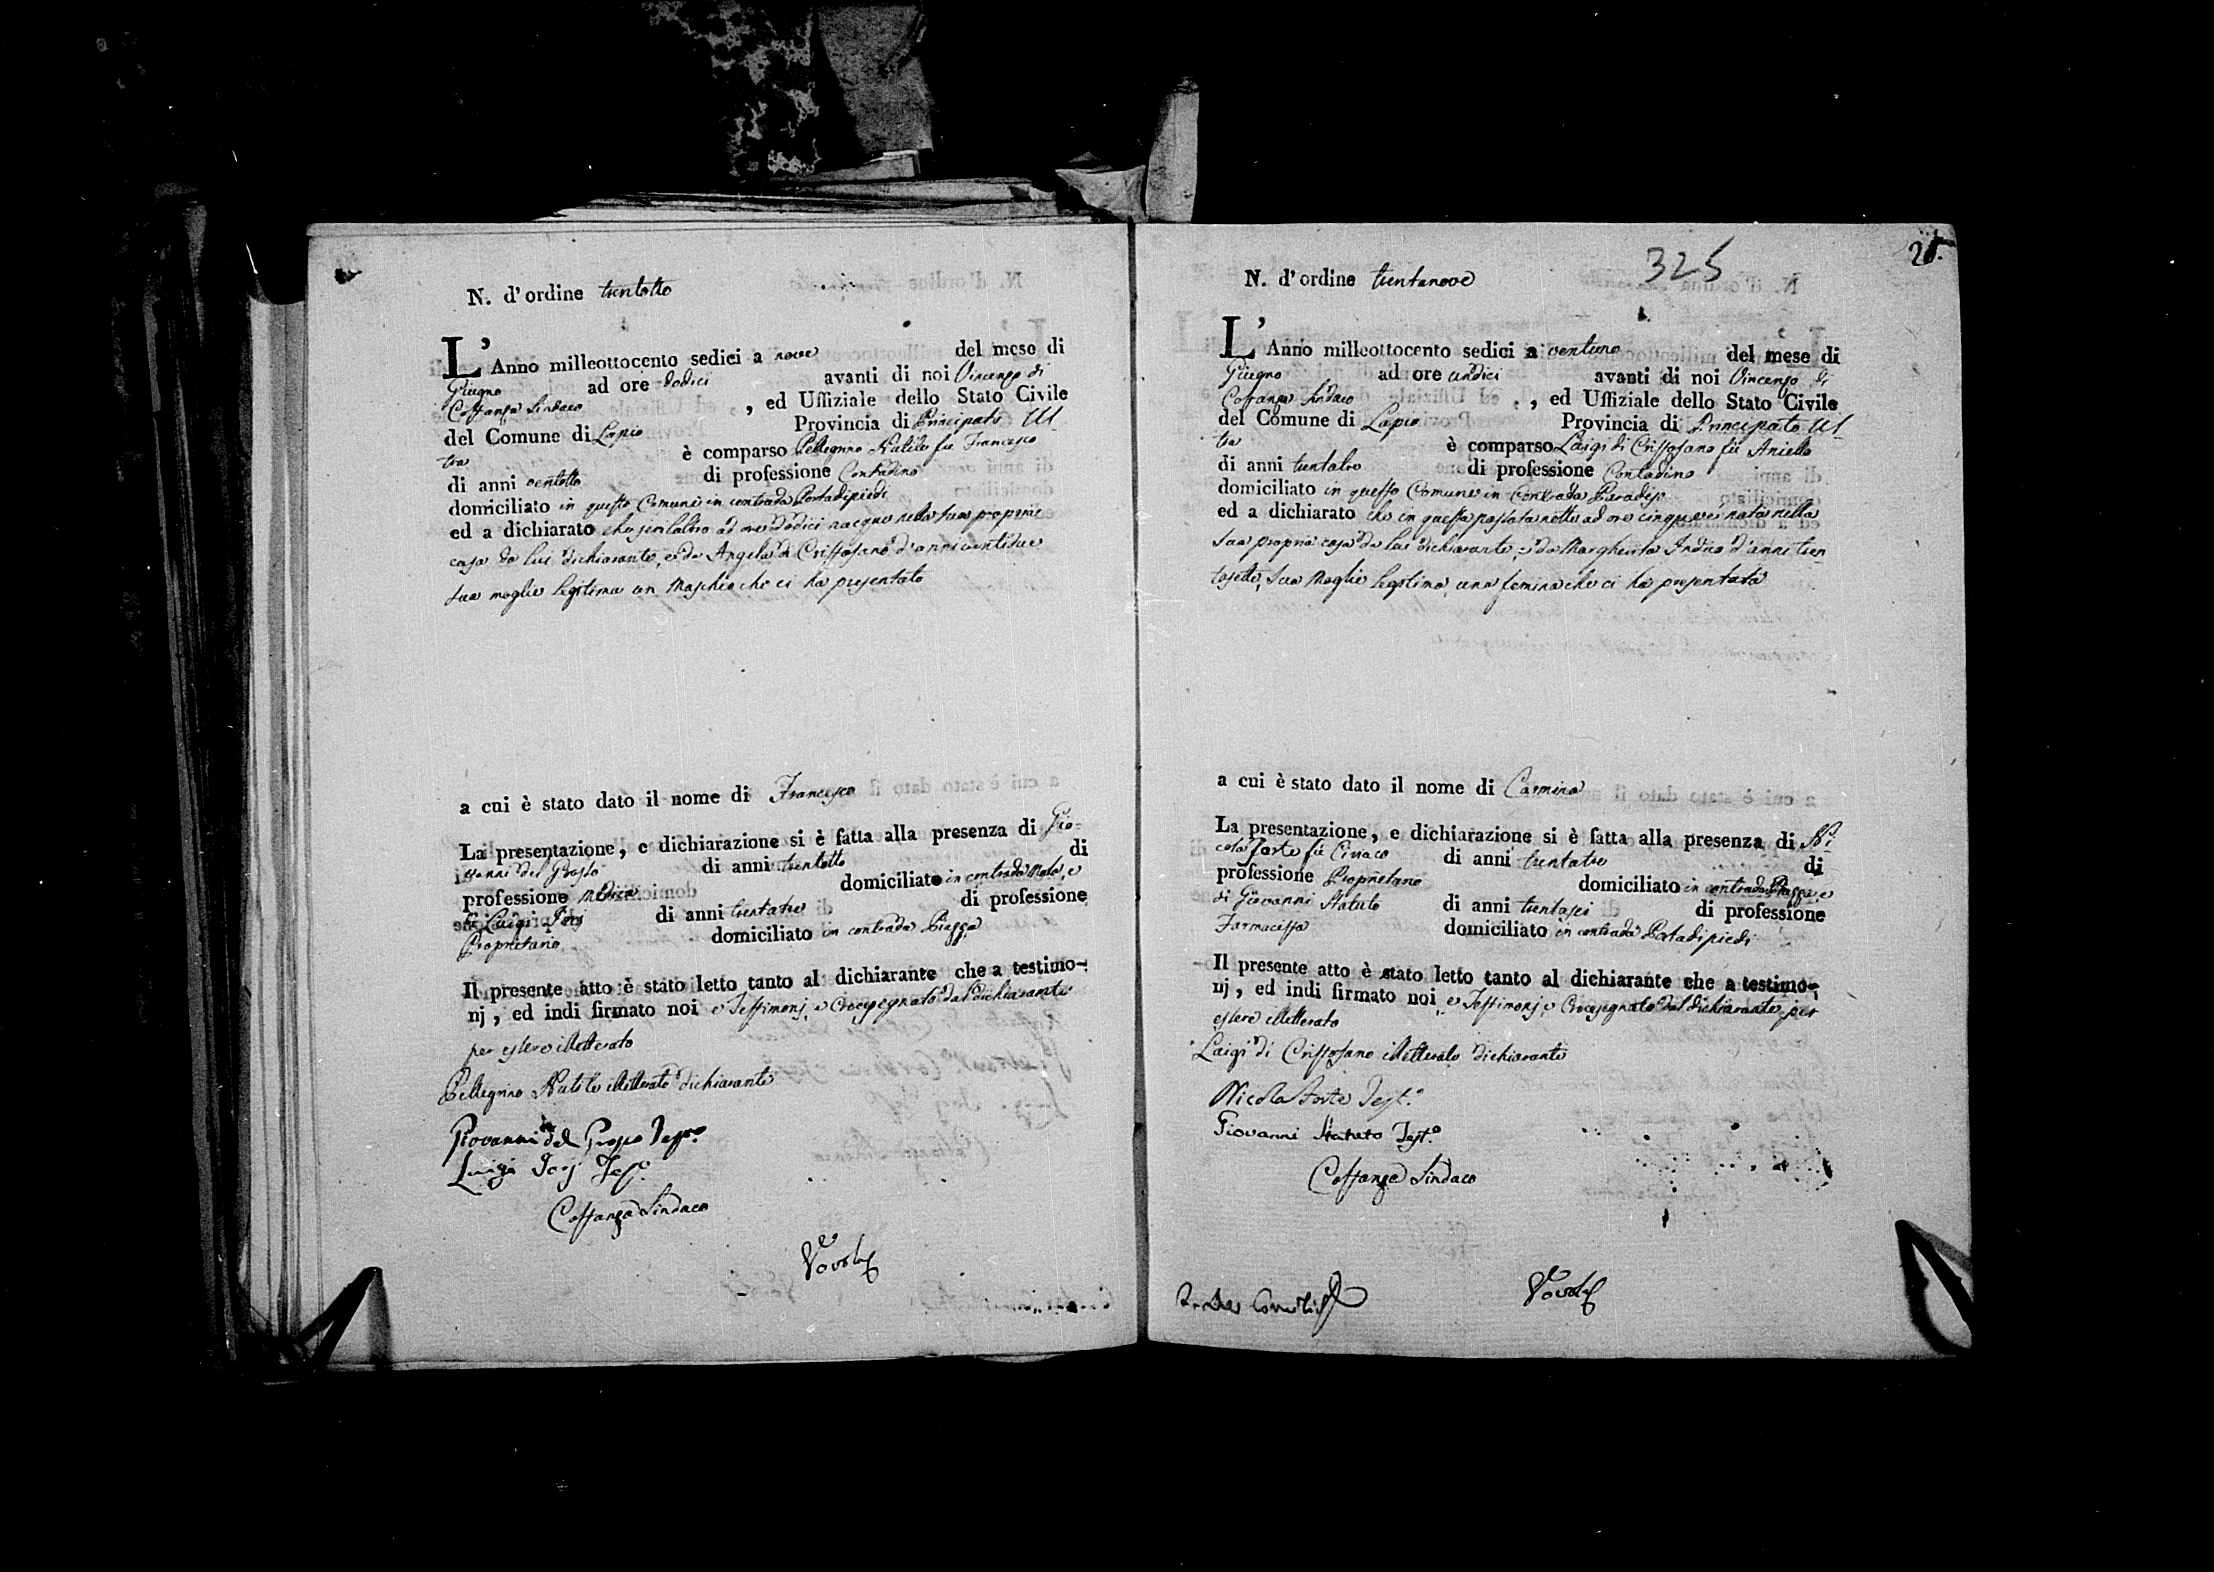 N. d'ordine trentotto
L'Anno milleottocento sedici a nove del mese di
Giugno ad ore dodici avanti di noi Vincenzo di
Costanza Sindaco, ed Uffiziale dello Stato Civile
del Comune di Lapio Provincia di Principato Ul-
tra è comparso Pellegrino Natile fu Francesco
di anni ventotto di professione Contadino
domiciliato in questo Comune in contrada Portadipiedi
ed a dichiarato che jer l'altro ad ore dodici nacque nella sua propria
casa da lui dichiarante, e da Angela di Crissofano d'anni ventidue
sua moglie legitima un Maschio che ci ha presentato
a cui è stato dato il nome di Francesco
La presentazione, e dichiarazione si è fatta alla presenza di Gio-
vanni del Grosso di anni trentotto di
professione Medico domiciliato in contrada e
Luigi di anni trentatre di professione
Proprietario domiciliato in contrada Piazza
Il presente atto è stato letto tanto al dichiarante che a testimo-
nj, ed indi firmato noi e Testimonj, e Crocesegnato dal dichiarante
per essere illetterato
Pellegrino Natile illetterato dichiarante
Giovanni del Grosso Test.o
Luigi Test.o
Costanza Sindaco
325
N. d'ordine trentanove
L'Anno milleottocento sedici a ventuno del mese di
Giugno ad ore undici avanti di noi Vincenzo di
Costanza Sindaco, ed Uffiziale dello Stato Civile
del Comune di Lapio Provincia di Principato Ul-
tra è comparso Luigi di Crissofano fu Aniello
di anni di professione Contadino
domiciliato in questo Comune in Contrada Paradiso
ed a dichiarato che in questa passata notte ad ore cinque è nata nella
sua propria casa da lui dichiarante, e da Margherita Indico d'anni tren
tasette, sua Moglie legitima, una femina che ci ha presentata
a cui è stato dato il nome di Carmina
La presentazione, e dichiarazione si è fatta alla presenza di Ni-
cola Forte fu Ciriaco di anni trentatre di
professione Proprietario domiciliato in contrada Piazza, e
di Giovanni Statuto di anni trentasei di professione
Farmacista domiciliato in contrada Portadipiedi
Il presente atto è stato letto tanto al dichiarante che a testimo-
nj, ed indi firmato noi e Testimonj, e Crocesegnato dal dichiarante per
essere illetterato
Luigi di Crissofano illetterato dichiarante
Nicola Forte Test.o
Giovanni Statuto Test.o
Costanza Sindaco